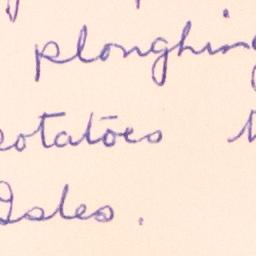 ploughing
potatoes
Isles.